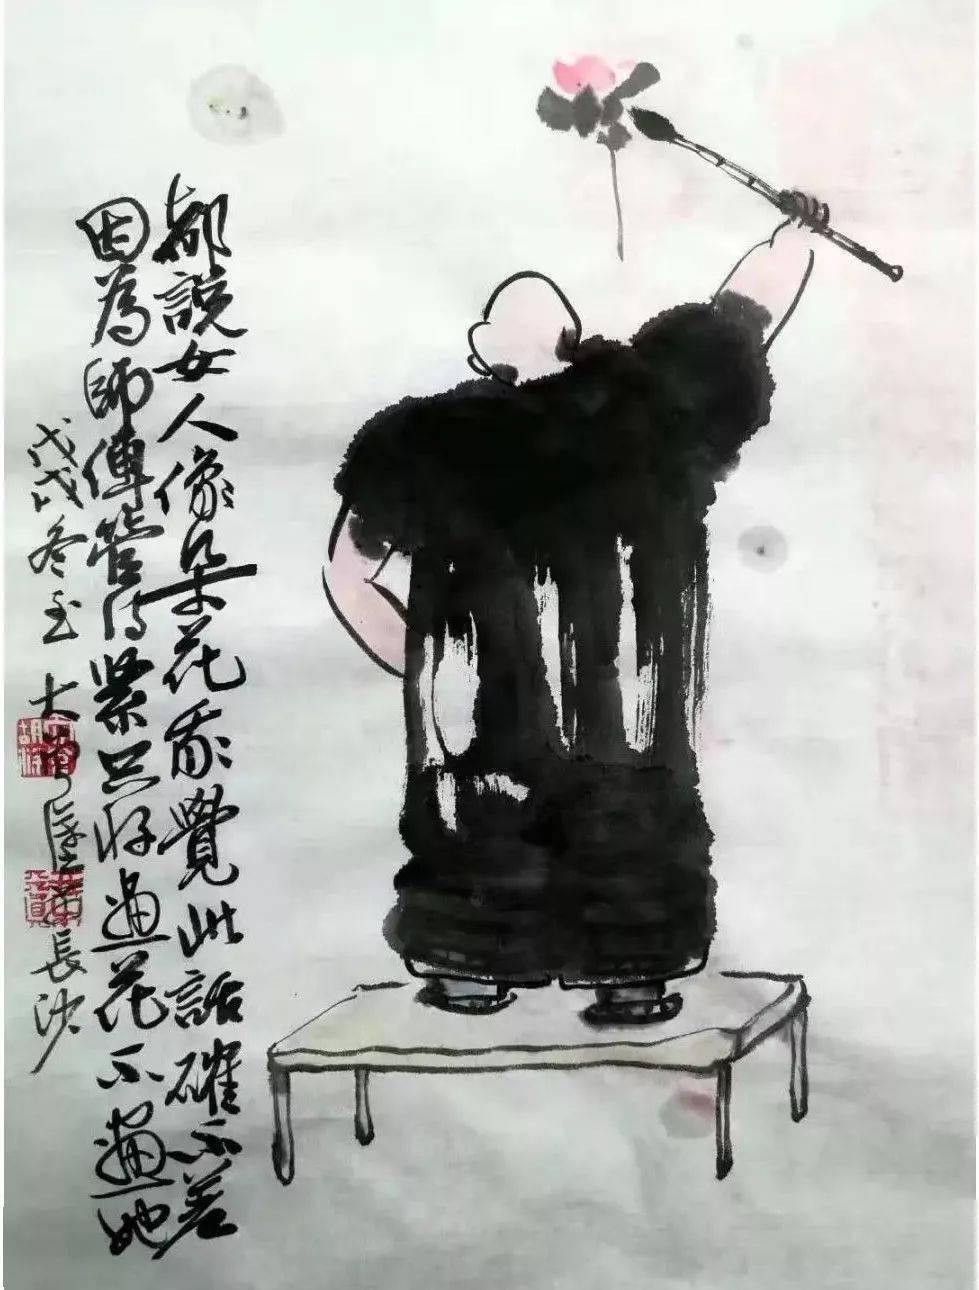 都說女人像朵花我覺此話確不差
因為師傅管得緊只好畫花不畫她
戊戌冬至大 長沙